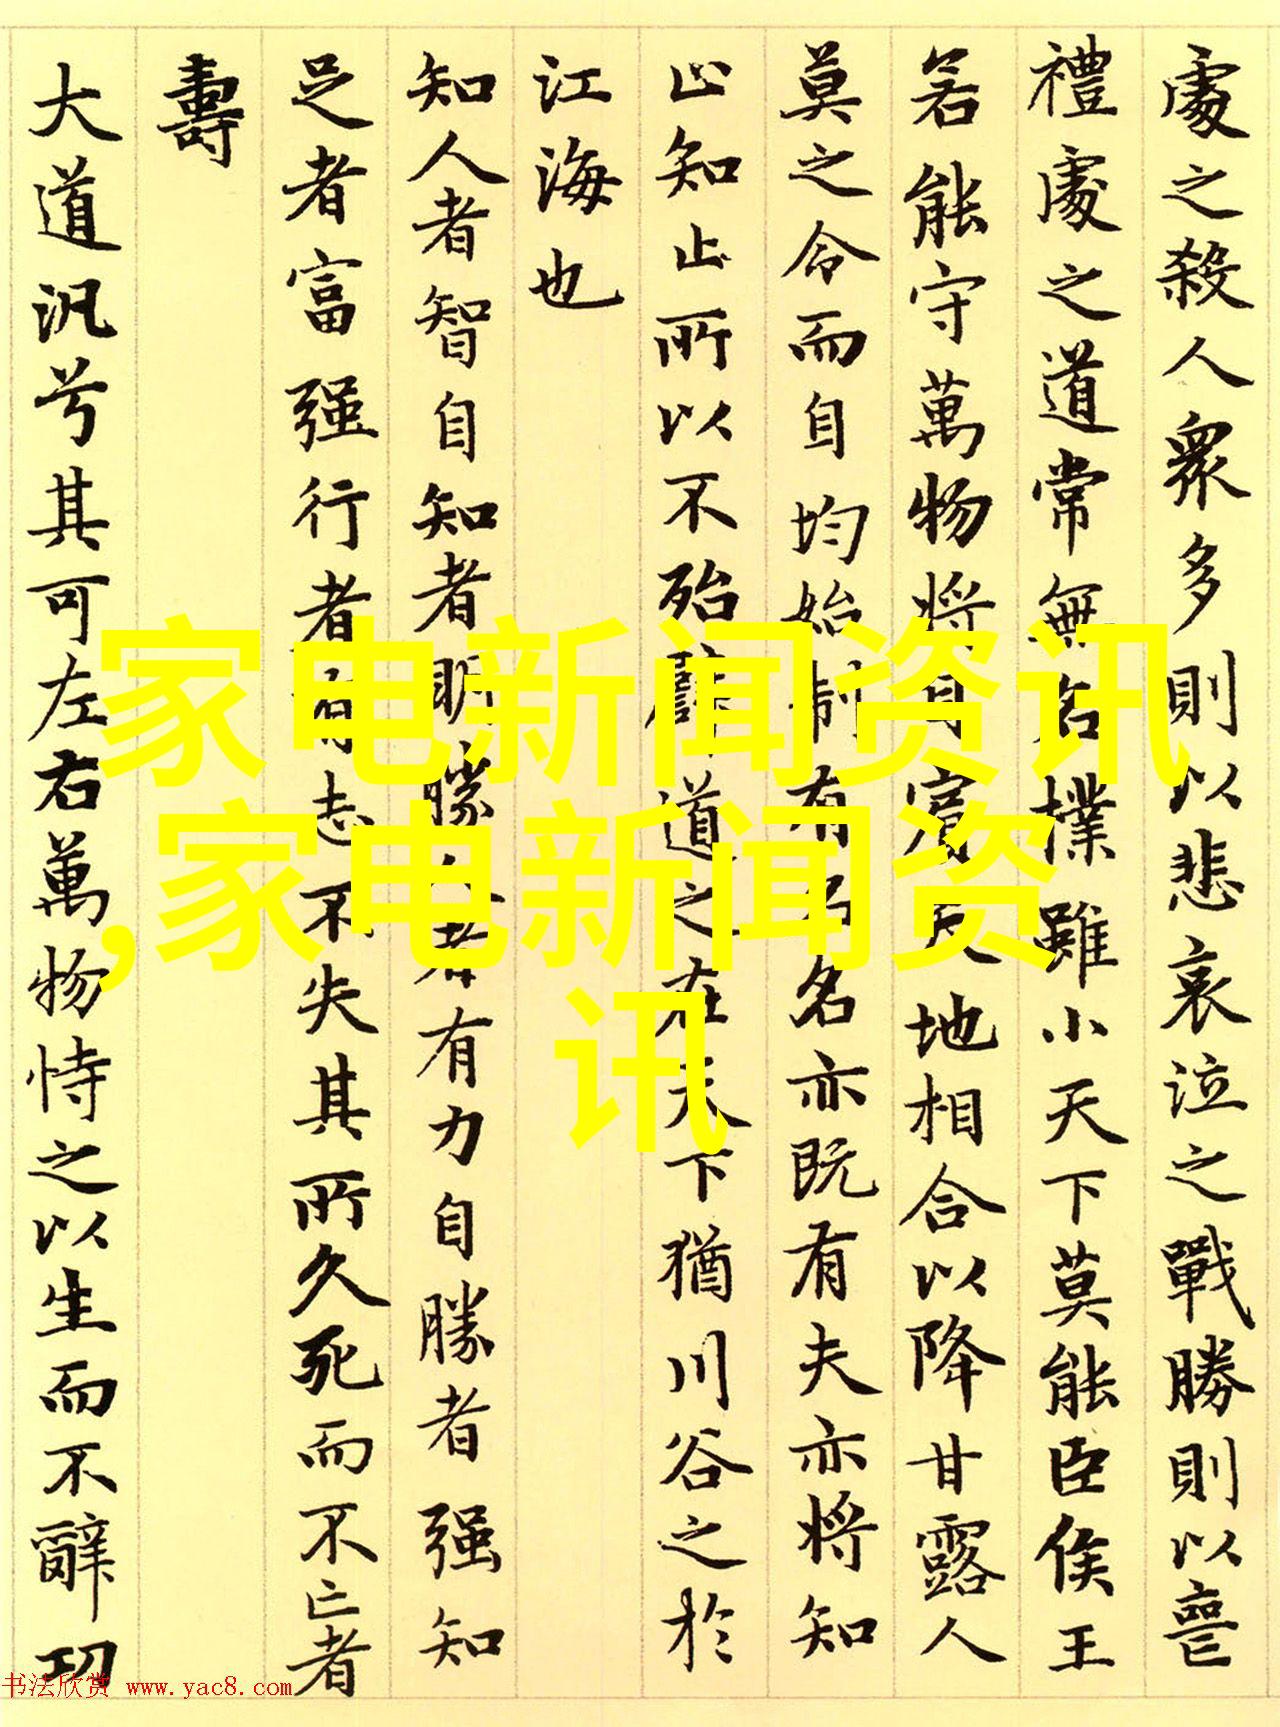 處之殺人衆多則以悲哀泣之戰勝則以喪
禮處之道常無名樸雖小天下莫能臣侯王
若能守萬物將自賓天地相合以降甘露人
莫之令而自均始制有名名亦既有夫亦將知
止知止所以不殆譬道之在天下猶川谷之於
江海也
知人者智自知者明勝人者有力自勝者强知
足者富强行者有志不失其所久死而不亡者
壽
大道汎兮其可左右萬物恃之以生而不辭功
家电新闻资讯
,家电新闻资
讯
书法欣赏 www.yac8.com